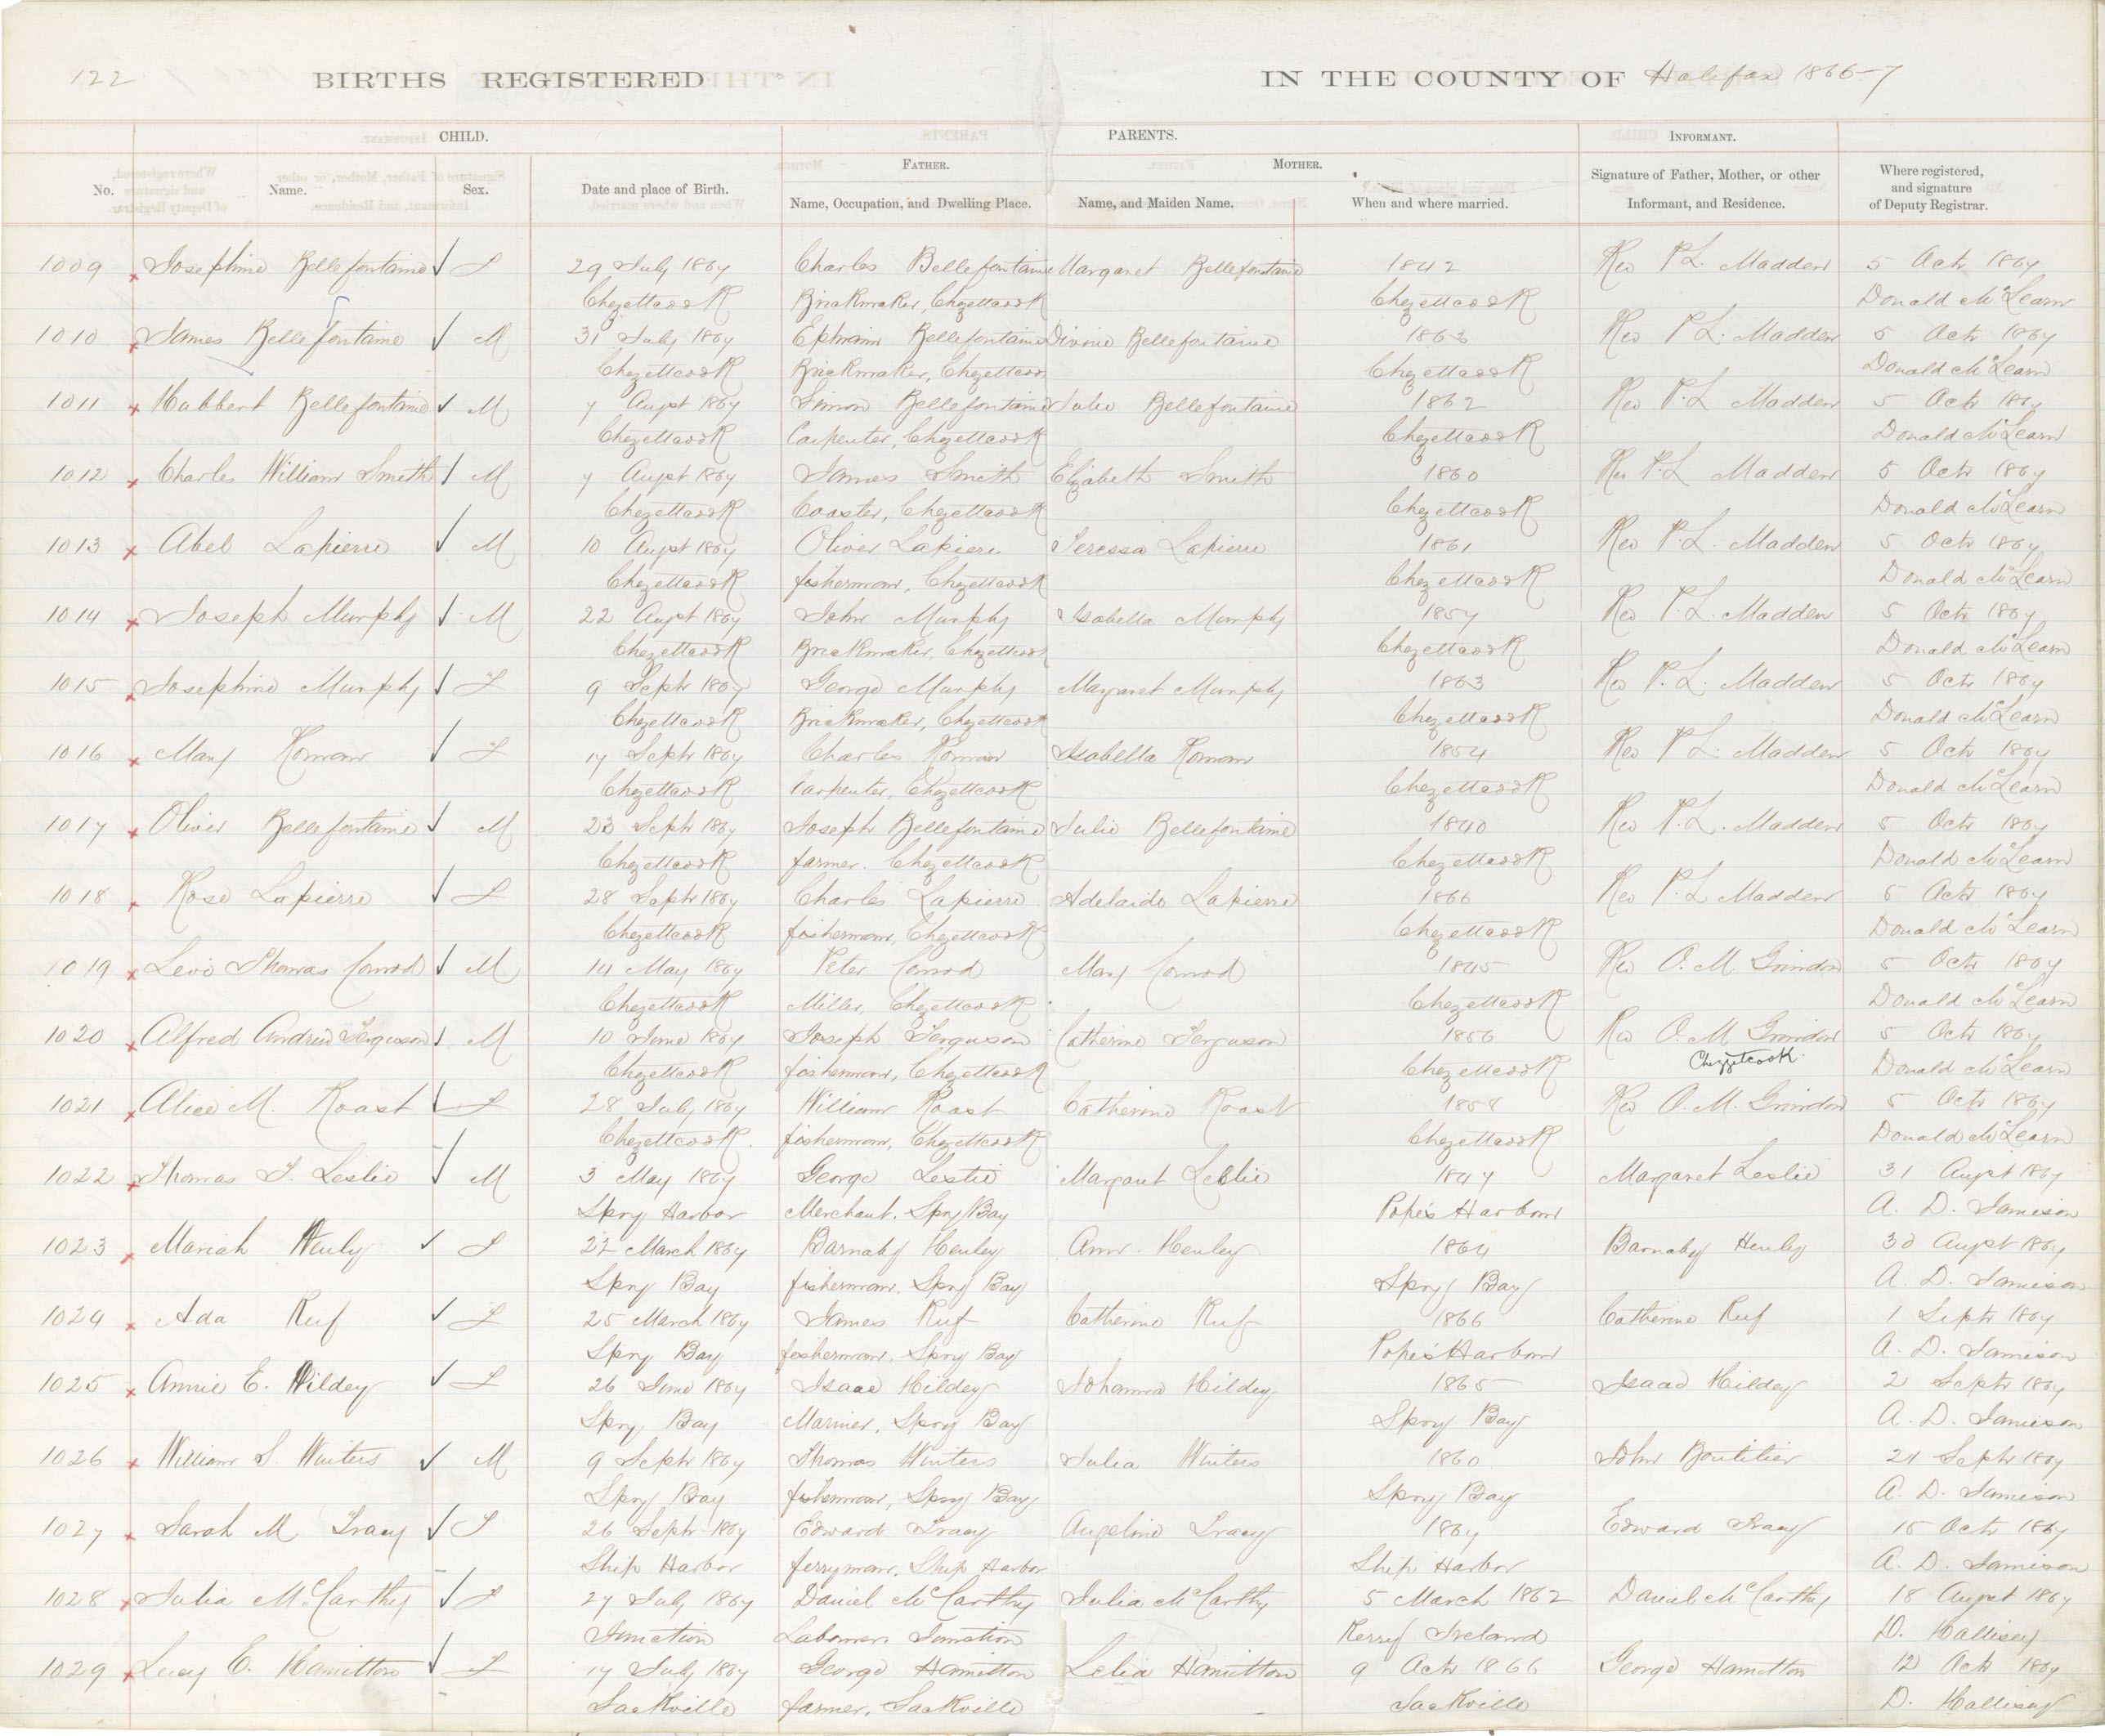 122
BIRTHS REGISTERED IN THE COUNTY OF Halifax 1866-7
CHILD. PARENTS. INFORMANT.
FATHER. MOTHER.
No. Name. Sex. Date and place of Birth. Name, Occupation, and Dwelling Place. Name, and Maiden Name. When and where married. Signature of Father, Mother, or other Informant, and Residence. Where registered, and signature of Deputy Registrar.
1009 Josephine Bellefontaine F 29 July 1867 Charles Bellefontaine Margaret Bellefontaine 1842 Rev P L. Madden 5 Octr 1867
Chezettcook Brickmaker, Chezettcook Chezettcook Donald McLearn
1010 James Bellefontaine M 31 July 1867 Ephraim Bellefontaine Divine Bellefontaine 1863 Rev P L. Madden 5 Octr 1867
Chezettcook Brickmaker, Chezettcook Chezettcook Donald McLearn
1011 Hubbert Bellefontaine M 7 Augst 1867 Simon Bellefontaine Julie Bellefontaine 1862 Rev P. L Madden 5 Octr 1867
Chezettcook Carpenter, Chezettcook Chezettcook Donald McLearn
1012 Charles William Smith M 7 Augst 1867 James Smith Elizabeth Smith 1860 Rev P. L Madden 5 Octr 1867
Chezettcook Coaster, Chezettcook Chezettcook Donald McLearn
1013 Abel Lapierre M 10 Augst 1867 Oliver Lapierre Teressa Lapierre 1861 Rev P. L. Madden 5 Octr 1867
Chezettcook fisherman, Chezettcook Chezettcook Donald McLearn
1014 Joseph Murphy M 22 Augst 1867 John Murphy Isabella Murphy 1857 Rev P. L. Madden 5 Octr 1867
Chezettcook Brickmaker, Chezettcook Chezettcook Donald McLearn
1015 Josephine Murphy F 9 Septr 1867 George Murphy Margaret Murphy 1863 Rev P. L. Madden 5 Octr 1867
Chezettcook Brickmaker, Chezettcook Chezettcook Donald McLearn
1016 Mary Roman F 17 Septr 1867 Charles Roman Isabella Roman 1854 Rev P L. Madden 5 Octr 1867
Chezettcook Carpenter, Chezettcook Chezettcook Donald McLearn
1017 Oliver Bellefontaine M 23 Septr 1867 Joseph Bellefontaine Julie Bellefontaine 1840 Rev P. L. Madden 5 Octr 1867
Chezettcook farmer. Chezettcook Chezettcook Donald McLearn
1018 Rose Lapierre F 28 Septr 1867 Charles Lapierre Adelaide Lapierre 1866 Rev P. L Madden 5 Octr 1867
Chezettcook fisherman, Chezettcook Chezettcook Donald McLearn
1019 Levi Thomas Conrod M 14 May 1867 Peter Conrod Mary Conrod 1845 Rev O. M. Grindon 5 Octr 1867
Chezettcook Miller, Chezettcook Chezettcook Donald McLearn
1020 Alfred Andrew Ferguson M 10 June 1867 Joseph Ferguson Catherine Ferguson 1856 Rev O. M Grindon 5 Octr 1867
Chezettcook fisherman, Chezettcook Chezettcook Chezzetcook. Donald McLearn
1021 Alice M. Roast F 28 July 1867 William Roast Catherine Roast 1858 Rev O. M. Grindon 5 Octr 1867
Chezettcook. fisherman, Chezettcook Chezettcook Donald McLearn
1022 Thomas J. Leslie M 3 May 1867 George Leslie Margaret Leslie 1847 Margaret Leslie 31 Augst 1867
Spry Harbor Merchant. Spry Bay Pope's Harbour A. D. Jamison
1023 Mariah Henley F 22 March 1867 Barnaby Henley Ann. Henley 1864 Barnaby Henley 30 Augst 1867
Spry Bay fisherman. Spry Bay Spry Bay A. D. Jamison
1024 Ada Ruf F 25 March 1867 James Ruf Catherine Ruf 1866 Catherine Ruf 1 Septr 1867
Spry Bay fisherman, Spry Bay Pope's Harbour A. D. Jamison
1025 Annie E. Hildey F 26 June 1867 Isaac Hildey Johanna Hildey 1865 Isaac Hildey 2 Septr 1867
Spry Bay Mariner, Spry Bay Spry Bay A. D. Jamison
1026 William S. Winters M 9 Septr 1867 Thomas Winters Julia Winters 1860 John Boutilier 21 Septr 1867
Spry Bay fisherman, Spry Bay Spry Bay A. D. Jamison
1027 Sarah M Tracy F 26 Septr 1867 Edward Tracy Angeline Tracy 1867 Edward Tracy 15 Octr 1867
Ship Harbor ferryman. Ship Harbor Ship Harbor A. D. Jamison
1028 Julia McCarthy F 27 July 1867 Daniel McCarthy Julia McCarthy 5 March 1862 Daniel McCarthy 18 Augst 1867
Junction Labourer. Junction Kerry Ireland D. Hallisey
1029 Lucy E. Hamilton F 17 July 1867 George Hamilton Lelia Hamilton 9 Octr 1866 George Hamilton 12 Octr 1867
Sackville farmer, Sackville Sackville D. Hallisey